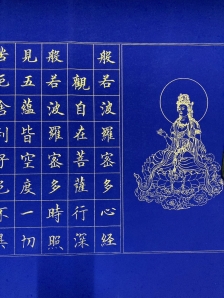 般若波羅密多心經
觀自在菩薩行深
般若波羅密多時照
見五蘊皆空度一切
苦厄舍利子色不異